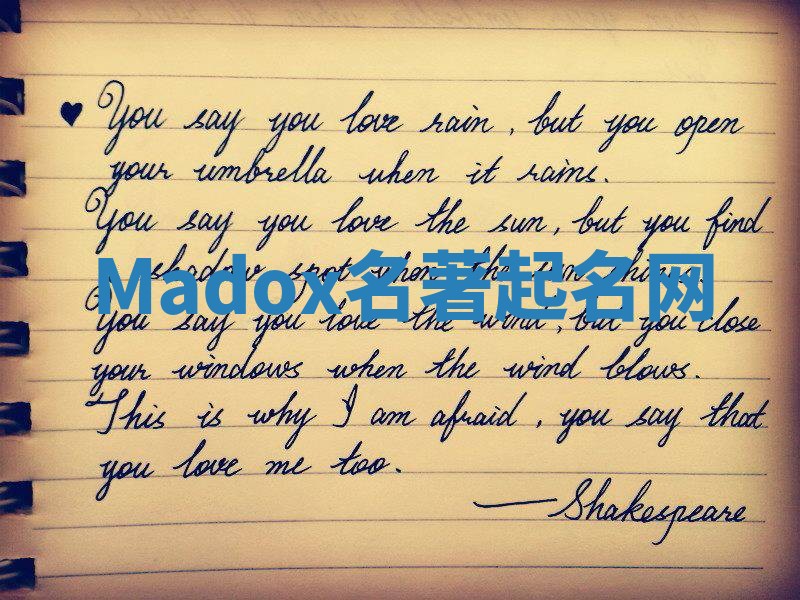 ♥ You say you love rain, but you open
your umbrella when it rains.
You say you love the sun, but you find
shadow spot when the sun shines.
Madox名著起名网
You say you love the wind, but you close
your windows when the wind blows.
This is why I am afraid, you say that
you love me too.
— Shakespeare